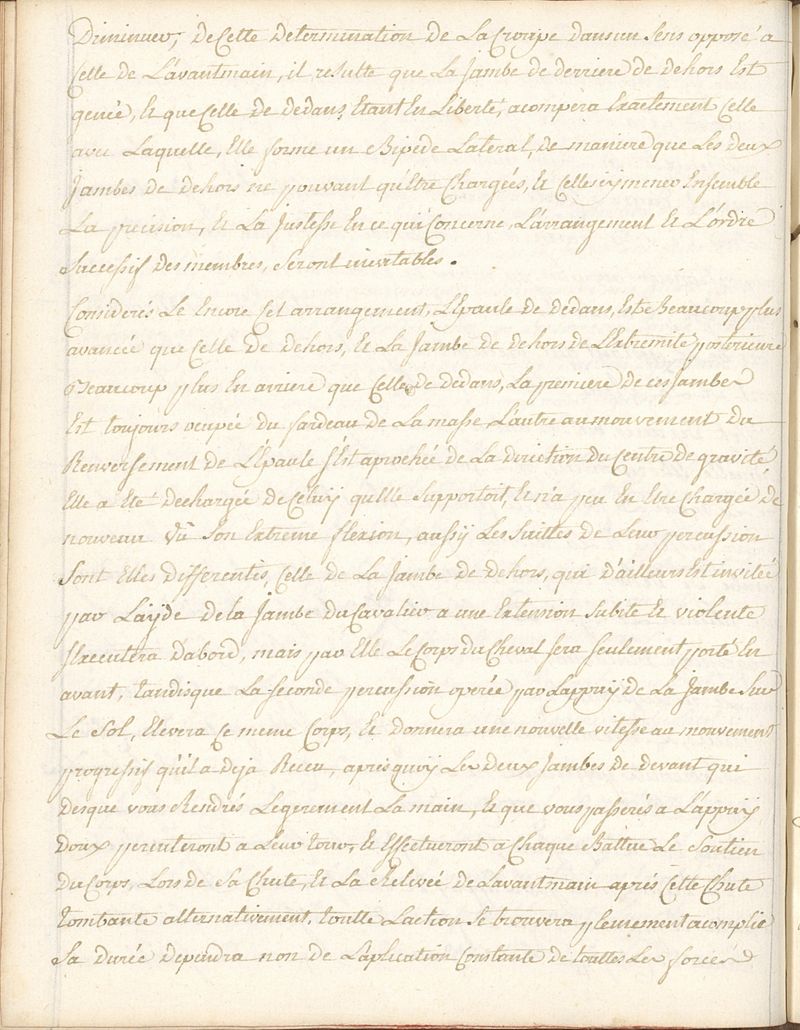 Diminuer, de Cette determination de La Croupe dans un sens opposé a
Celle de L'avantmain, il resulte que La Jambe de derriere de dehors Est
genée, Et que Celle de dedans, Etant En Liberté, acompera Exactement Celle
avec Laquelle, Elle forme un Bipede Lateral, de maniere que Les deux
Jambes de dehors ne pouvant qu'Etre Chargées, Et Celles cy mener Ensemble
La precision, Et La Justesse En ce qui Concerne, L'arrangement Et L'ordre
Successif des membres, seront inevitables.
Considerés Le Encore Cet arrangement, L'Epaule de dedans, Est Beaucoup plus
avancée que Celle de dehors, Et La Jambe de dehors de L'Extremité posterieure
Beaucoup plus En arriere que Celle de dedans, La premiere de ces Jambes
Est toujours ocupée du fardeau de La masse, L'autre au mouvement du
Renversement de L'Epaule s'Est aprochée de La direction du Centre de gravité,
Elle a Eté dechargée de Celuy qu'Elle supportoit, Et n'a peu En Etre Chargée de
nouveau Vû Son Extreme flexion, aussy Les suittes de Leur percussion
sont Elles differentes, Celle de La Jambe de dehors, qui d'ailleurs Est invitée
par L'ayde de la Jambe du Cavalier a une Extension subite Et violente
s'Executera d'abord, mais par Elle Le Corps du Cheval sera seulement porté En
avant, tandisque La seconde percussion operée par L'appuy de La Jambe sur
Le Sol, Elevera Ce meme Corps, Et donnera une nouvelle vitesse au mouvement
progressif qu'il a deja Receu, apres quoy Les deux Jambes de devant qui
desque vous Rendrés Legerement La main, Et que vous passerés a L'appuy
doux percuteront a Leur tour, Et Effectueront a Chaque Battue Le Soutien
du Corps, Lors de Sa Chute, Et La Relevée de L'avantmain aprés Cette Chute
tombante alternativement, toutte L'action Se trouvera pleinement acomplie
Sa durée dependra non de L'aplication Constante de touttes Les forces